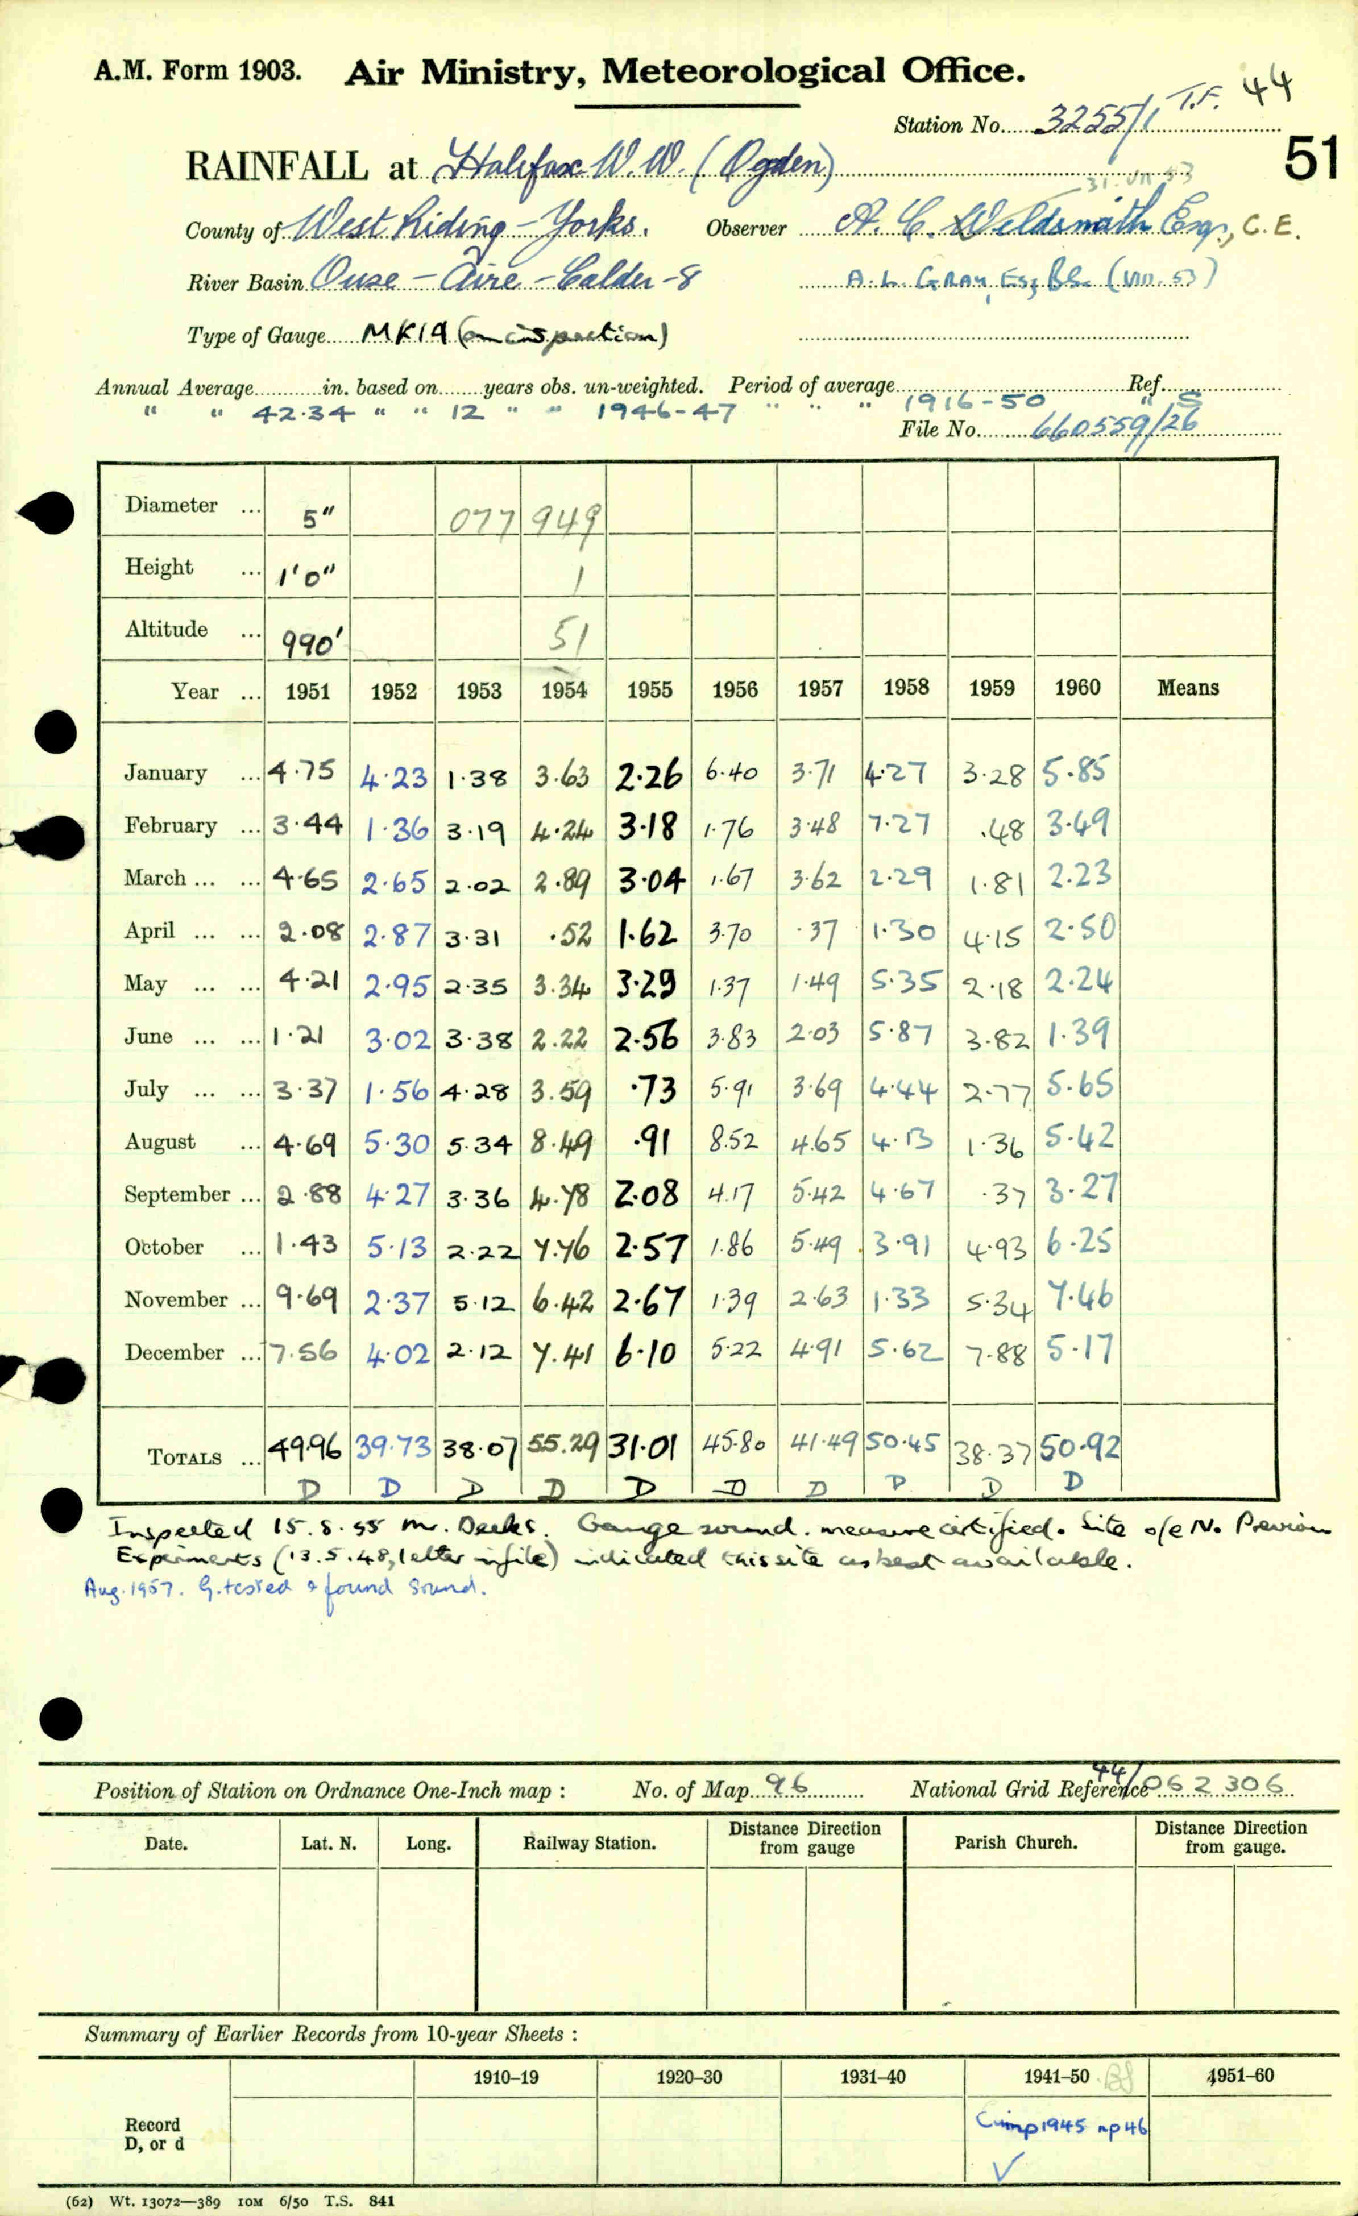 A.M. Form 1903. Air Ministry, Meteorological Office.
T.F. 44
Station No. 3255/1
51
RAINFALL at Halifax W.W. (Ogden)
31.VII.53
County of West Riding - Yorks. Observer A. C. Weldsmith Esq., C.E.
River Basin Ouse - Aire - Calder - 8 A. L. GRAY, Esq BSc (VIII.53)
Type of Gauge MK1A (on inspection)
Annual Average in. based on years obs. un-weighted. Period of average Ref.
" " 42.34 " " 12 " " 1946-47 " " " 1916-50 " S
File No. 660559/26
Diameter ... 5" 077 949
Height ... 1'0" 1
Altitude ... 990' 51
Year ... 1951 1952 1953 1954 1955 1956 1957 1958 1959 1960 Means
January ... 4.75 4.23 1.38 3.63 2.26 6.40 3.71 4.27 3.28 5.85
February ... 3.44 1.36 3.19 4.24 3.18 1.76 3.48 7.27 .48 3.49
March ... ... 4.65 2.65 2.02 2.89 3.04 1.67 3.62 2.29 1.81 2.23
April ... ... 2.08 2.87 3.31 .52 1.62 3.70 .37 1.30 4.15 2.50
May ... ... 4.21 2.95 2.35 3.34 3.29 1.37 1.49 5.35 2.18 2.24
June ... ... 1.21 3.02 3.38 2.22 2.56 3.83 2.03 5.87 3.82 1.39
July ... ... 3.37 1.56 4.28 3.59 .73 5.91 3.69 4.44 2.77 5.65
August ... 4.69 5.30 5.34 8.49 .91 8.52 4.65 4.13 1.36 5.42
September ... 2.88 4.27 3.36 4.78 2.08 4.17 5.42 4.67 .37 3.27
October ... 1.43 5.13 2.22 7.76 2.57 1.86 5.49 3.91 4.93 6.25
November ... 9.69 2.37 5.12 6.42 2.67 1.39 2.63 1.33 5.34 7.46
December ... 7.56 4.02 2.12 7.41 6.10 5.22 4.91 5.62 7.88 5.17
TOTALS ... 49.96 39.73 38.07 55.29 31.01 45.80 41.49 50.45 38.37 50.92
D D D D D D D D D D
Inspected 15.8.55 Mr. Deeks. Gauge sound. measure certified. Site o/e N. Previous
Experiments (13.5.48, letter in file) indicated this site as best available.
Aug. 1957. G. tested & found sound.
Position of Station on Ordnance One-Inch map : No. of Map 96 National Grid Reference 44/062306
Date. Lat. N. Long. Railway Station. Distance Direction from gauge Parish Church. Distance Direction from gauge.
Summary of Earlier Records from 10-year Sheets :
1910–19 1920–30 1931–40 1941–50 1951–60
Record
D, or d
Comp 1945 np 46
✓
(62) Wt. 13072—389 10M 6/50 T.S. 841